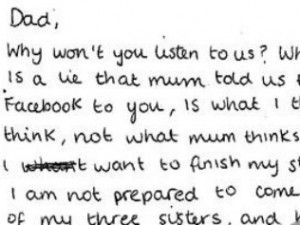 Dad,
Why won't you listen to us? Wh
Is a lie that mum told us t
Facebook to you, is what I t
think, not what mum thinks
I want to finish my s
I am not prepared to come
of my three sisters, and h